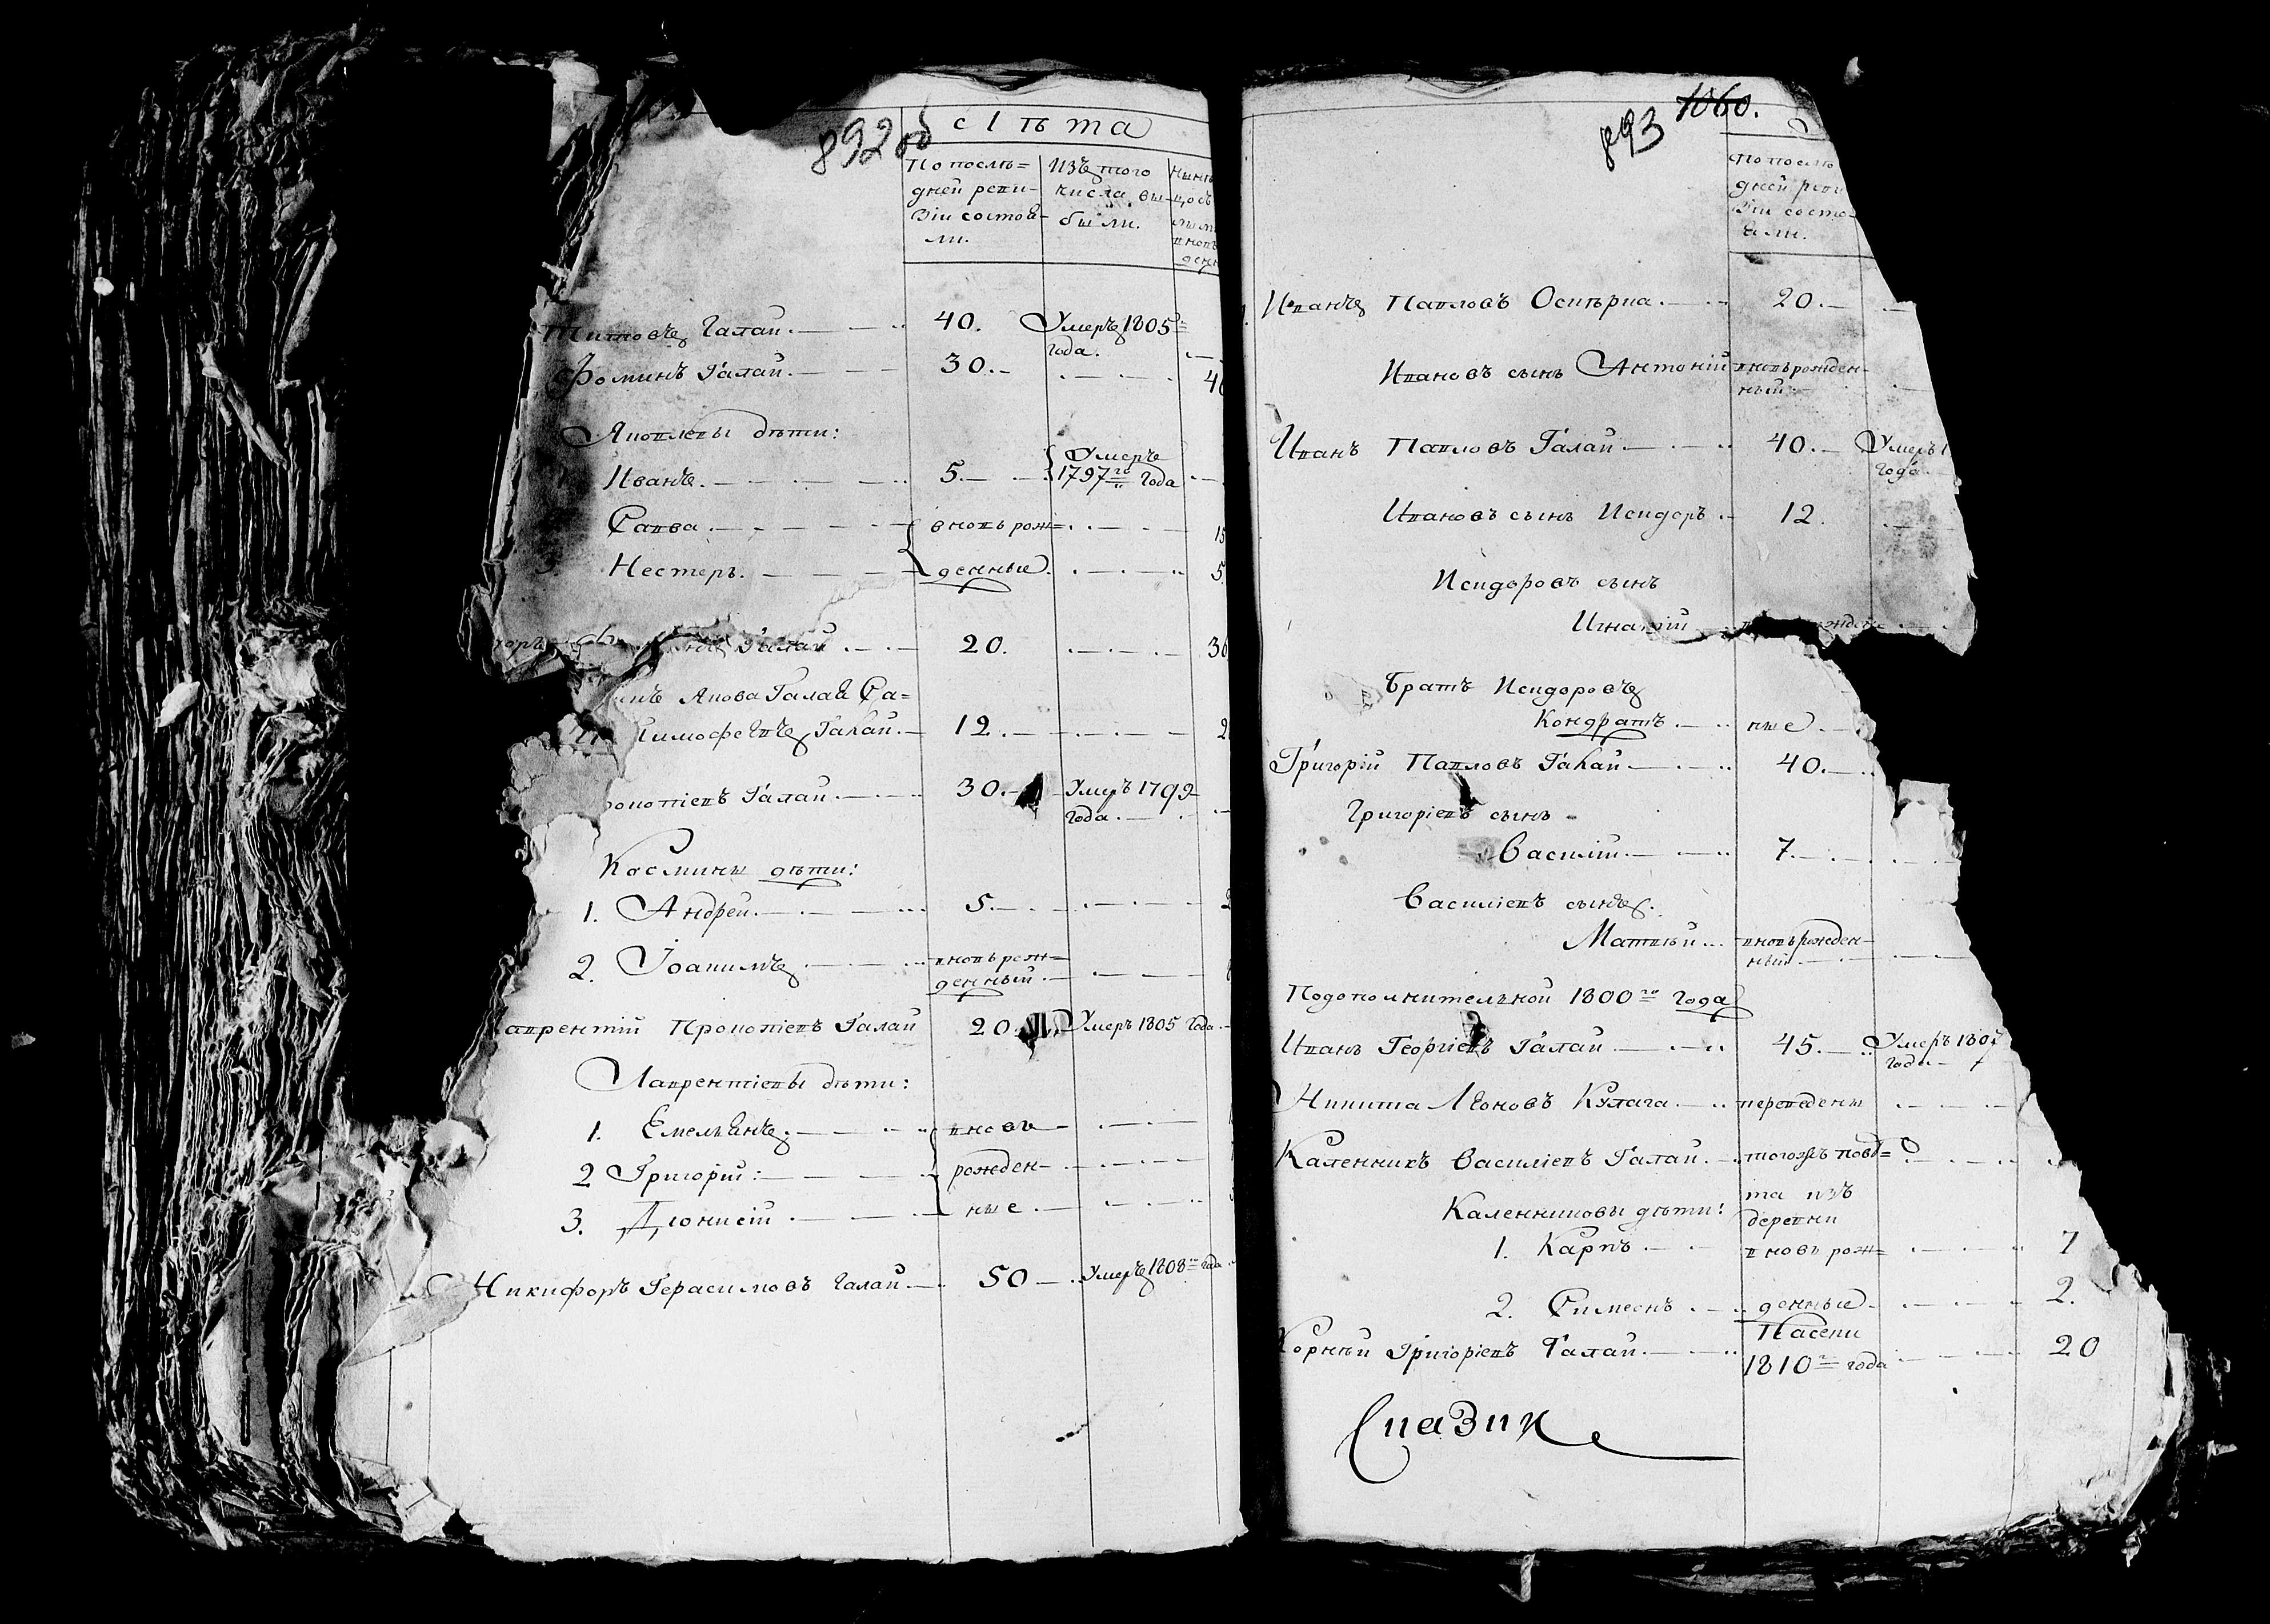 892 об
сіѣта
По послѣ=
дней реви-
зіи состоя-
ли.
Изъ того
числа вы-
были.
Титовъ Галай. 40. Умеръ 1805
года.
Фоминъ Галай. 30.
Яковлевы дѣти:
Иванъ. 5. Умеръ
1797го года
Савва. вновь рож= 15
3. Нестеръ. денные. 5.
Галай 20. 36
Якова Галая Са=
Тимофеевъ Галай. 12.
Галай 30. Умеръ 1799
года.
Космины дѣти:
1. Андрей. 5.
2. Іоакимъ вновь рож=
денный.
аврентій Прокопіевъ Галай 20. Умеръ 1805 года.
Лаврентіевы дѣти:
1. Емельянъ. вновь
2 Григорій: рожден-
3. Діонисій ные.
Никифоръ Герасимовъ Галай 50 Умеръ 1808го года
893 1060.
По послѣ
дней реви
зіи состо-
яли.
Иванъ Павловъ 20.
Ивановъ сынъ Антоній вновь рожден-
ный
Иванъ Павловъ Галай 40. Умеръ 1
года.
Ивановъ сынъ Исидоръ 12.
Исидоровъ сынъ
Игнатій
Братъ Исидоровъ
Кондратъ ные
Григорій Павловъ Галай 40.
Григоріевъ сынъ
Василій 7.
Василіевъ сынъ.
Матвѣй вновь рожден-
ный
По дополнительной 1800го года
Иванъ Георгіевъ Галай 45. Умеръ 180
года
Никита Леоновъ Кулага переведены
Каленникъ Василіевъ Галай. тогожъ повѣ=
та изъ
Каленниковы дѣти: деревни
1. Карпъ вновь рож= 7
2. Симеонъ денные 2.
Корнѣй Григоріевъ Галай. Пасеки
1810го года 20
Сказик